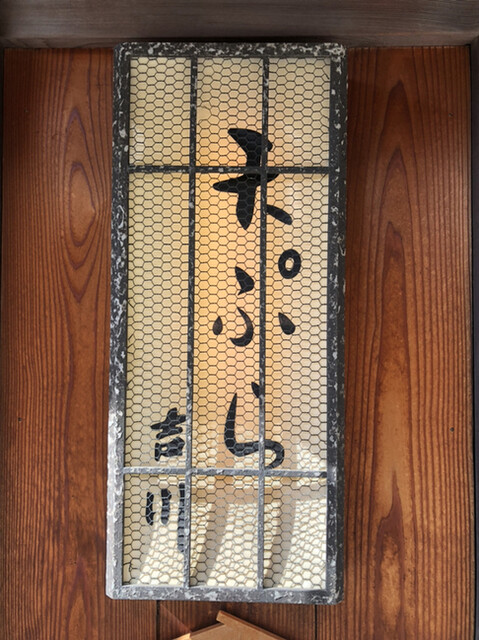 天ぷら
吉川